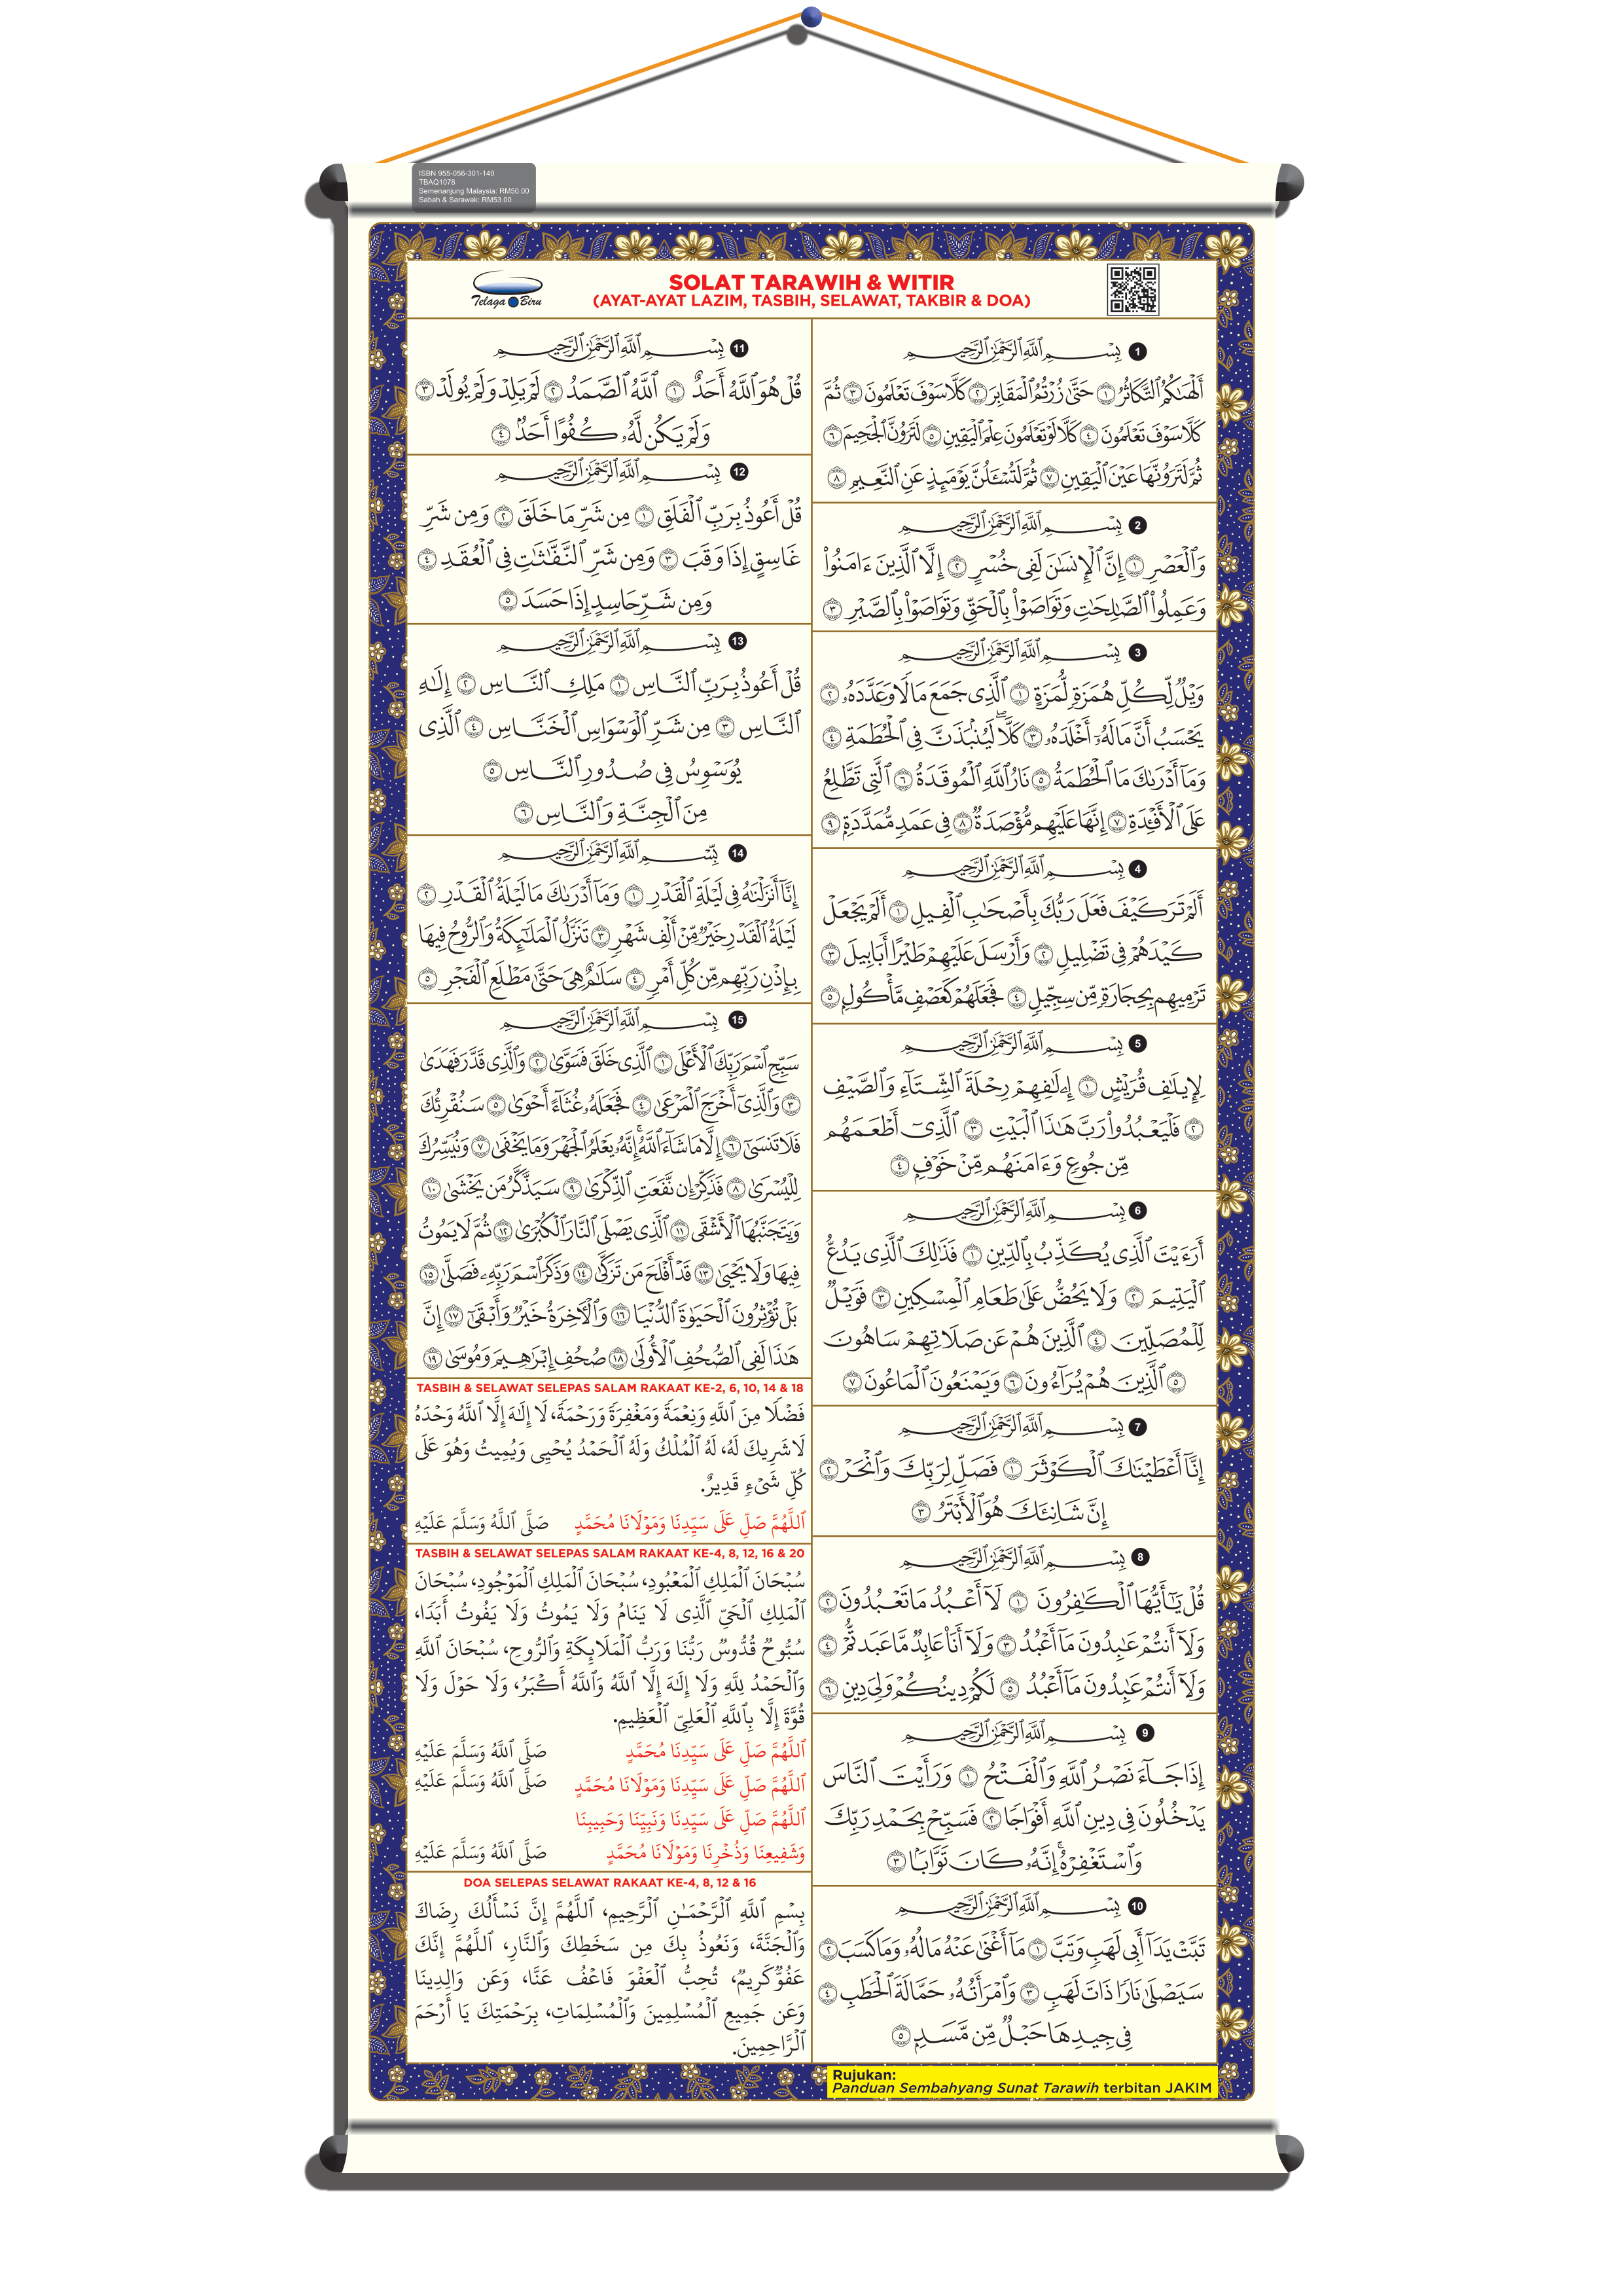 ISBN 955-056-301-140
TBAQ1078
Semenanjung Malaysia: RM50.00
Sabah & Sarawak: RM53.00
Telaga Biru
SOLAT TARAWIH & WITIR
(AYAT-AYAT LAZIM, TASBIH, SELAWAT, TAKBIR & DOA)
1 بِسْمِ ٱللَّهِ ٱلرَّحْمَٰنِ ٱلرَّحِيمِ
أَلْهَىٰكُمُ ٱلتَّكَاثُرُ ١ حَتَّىٰ زُرْتُمُ ٱلْمَقَابِرَ ٢ كَلَّا سَوْفَ تَعْلَمُونَ ٣ ثُمَّ
كَلَّا سَوْفَ تَعْلَمُونَ ٤ كَلَّا لَوْ تَعْلَمُونَ عِلْمَ ٱلْيَقِينِ ٥ لَتَرَوُنَّ ٱلْجَحِيمَ ٦
ثُمَّ لَتَرَوُنَّهَا عَيْنَ ٱلْيَقِينِ ٧ ثُمَّ لَتُسْـَٔلُنَّ يَوْمَئِذٍ عَنِ ٱلنَّعِيمِ ٨
2 بِسْمِ ٱللَّهِ ٱلرَّحْمَٰنِ ٱلرَّحِيمِ
وَٱلْعَصْرِ ١ إِنَّ ٱلْإِنسَٰنَ لَفِى خُسْرٍ ٢ إِلَّا ٱلَّذِينَ ءَامَنُوا۟
وَعَمِلُوا۟ ٱلصَّٰلِحَٰتِ وَتَوَاصَوْا۟ بِٱلْحَقِّ وَتَوَاصَوْا۟ بِٱلصَّبْرِ ٣
3 بِسْمِ ٱللَّهِ ٱلرَّحْمَٰنِ ٱلرَّحِيمِ
وَيْلٌ لِّكُلِّ هُمَزَةٍ لُّمَزَةٍ ١ ٱلَّذِى جَمَعَ مَالًا وَعَدَّدَهُۥ ٢
يَحْسَبُ أَنَّ مَالَهُۥٓ أَخْلَدَهُۥ ٣ كَلَّا ۖ لَيُنۢبَذَنَّ فِى ٱلْحُطَمَةِ ٤
وَمَآ أَدْرَىٰكَ مَا ٱلْحُطَمَةُ ٥ نَارُ ٱللَّهِ ٱلْمُوقَدَةُ ٦ ٱلَّتِى تَطَّلِعُ
عَلَى ٱلْأَفْـِٔدَةِ ٧ إِنَّهَا عَلَيْهِم مُّؤْصَدَةٌ ٨ فِى عَمَدٍ مُّمَدَّدَةٍۭ ٩
4 بِسْمِ ٱللَّهِ ٱلرَّحْمَٰنِ ٱلرَّحِيمِ
أَلَمْ تَرَ كَيْفَ فَعَلَ رَبُّكَ بِأَصْحَٰبِ ٱلْفِيلِ ١ أَلَمْ يَجْعَلْ
كَيْدَهُمْ فِى تَضْلِيلٍ ٢ وَأَرْسَلَ عَلَيْهِمْ طَيْرًا أَبَابِيلَ ٣
تَرْمِيهِم بِحِجَارَةٍ مِّن سِجِّيلٍ ٤ فَجَعَلَهُمْ كَعَصْفٍ مَّأْكُولٍۭ ٥
5 بِسْمِ ٱللَّهِ ٱلرَّحْمَٰنِ ٱلرَّحِيمِ
لِإِيلَٰفِ قُرَيْشٍ ١ إِۦلَٰفِهِمْ رِحْلَةَ ٱلشِّتَآءِ وَٱلصَّيْفِ
٢ فَلْيَعْبُدُوا۟ رَبَّ هَٰذَا ٱلْبَيْتِ ٣ ٱلَّذِىٓ أَطْعَمَهُم
مِّن جُوعٍ وَءَامَنَهُم مِّنْ خَوْفٍۭ ٤
6 بِسْمِ ٱللَّهِ ٱلرَّحْمَٰنِ ٱلرَّحِيمِ
أَرَءَيْتَ ٱلَّذِى يُكَذِّبُ بِٱلدِّينِ ١ فَذَٰلِكَ ٱلَّذِى يَدُعُّ
ٱلْيَتِيمَ ٢ وَلَا يَحُضُّ عَلَىٰ طَعَامِ ٱلْمِسْكِينِ ٣ فَوَيْلٌ
لِّلْمُصَلِّينَ ٤ ٱلَّذِينَ هُمْ عَن صَلَاتِهِمْ سَاهُونَ
٥ ٱلَّذِينَ هُمْ يُرَآءُونَ ٦ وَيَمْنَعُونَ ٱلْمَاعُونَ ٧
7 بِسْمِ ٱللَّهِ ٱلرَّحْمَٰنِ ٱلرَّحِيمِ
إِنَّآ أَعْطَيْنَٰكَ ٱلْكَوْثَرَ ١ فَصَلِّ لِرَبِّكَ وَٱنْحَرْ ٢
إِنَّ شَانِئَكَ هُوَ ٱلْأَبْتَرُ ٣
8 بِسْمِ ٱللَّهِ ٱلرَّحْمَٰنِ ٱلرَّحِيمِ
قُلْ يَٰٓأَيُّهَا ٱلْكَٰفِرُونَ ١ لَآ أَعْبُدُ مَا تَعْبُدُونَ ٢
وَلَآ أَنتُمْ عَٰبِدُونَ مَآ أَعْبُدُ ٣ وَلَآ أَنَا۠ عَابِدٌ مَّا عَبَدتُّمْ ٤
وَلَآ أَنتُمْ عَٰبِدُونَ مَآ أَعْبُدُ ٥ لَكُمْ دِينُكُمْ وَلِىَ دِينِ ٦
9 بِسْمِ ٱللَّهِ ٱلرَّحْمَٰنِ ٱلرَّحِيمِ
إِذَا جَآءَ نَصْرُ ٱللَّهِ وَٱلْفَتْحُ ١ وَرَأَيْتَ ٱلنَّاسَ
يَدْخُلُونَ فِى دِينِ ٱللَّهِ أَفْوَاجًا ٢ فَسَبِّحْ بِحَمْدِ رَبِّكَ
وَٱسْتَغْفِرْهُ ۚ إِنَّهُۥ كَانَ تَوَّابًۢا ٣
10 بِسْمِ ٱللَّهِ ٱلرَّحْمَٰنِ ٱلرَّحِيمِ
تَبَّتْ يَدَآ أَبِى لَهَبٍ وَتَبَّ ١ مَآ أَغْنَىٰ عَنْهُ مَالُهُۥ وَمَا كَسَبَ ٢
سَيَصْلَىٰ نَارًا ذَاتَ لَهَبٍ ٣ وَٱمْرَأَتُهُۥ حَمَّالَةَ ٱلْحَطَبِ ٤
فِى جِيدِهَا حَبْلٌ مِّن مَّسَدٍۭ ٥
11 بِسْمِ ٱللَّهِ ٱلرَّحْمَٰنِ ٱلرَّحِيمِ
قُلْ هُوَ ٱللَّهُ أَحَدٌ ١ ٱللَّهُ ٱلصَّمَدُ ٢ لَمْ يَلِدْ وَلَمْ يُولَدْ ٣
وَلَمْ يَكُن لَّهُۥ كُفُوًا أَحَدٌۢ ٤
12 بِسْمِ ٱللَّهِ ٱلرَّحْمَٰنِ ٱلرَّحِيمِ
قُلْ أَعُوذُ بِرَبِّ ٱلْفَلَقِ ١ مِن شَرِّ مَا خَلَقَ ٢ وَمِن شَرِّ
غَاسِقٍ إِذَا وَقَبَ ٣ وَمِن شَرِّ ٱلنَّفَّٰثَٰتِ فِى ٱلْعُقَدِ ٤
وَمِن شَرِّ حَاسِدٍ إِذَا حَسَدَ ٥
13 بِسْمِ ٱللَّهِ ٱلرَّحْمَٰنِ ٱلرَّحِيمِ
قُلْ أَعُوذُ بِرَبِّ ٱلنَّاسِ ١ مَلِكِ ٱلنَّاسِ ٢ إِلَٰهِ
ٱلنَّاسِ ٣ مِن شَرِّ ٱلْوَسْوَاسِ ٱلْخَنَّاسِ ٤ ٱلَّذِى
يُوَسْوِسُ فِى صُدُورِ ٱلنَّاسِ ٥
مِنَ ٱلْجِنَّةِ وَٱلنَّاسِ ٦
14 بِسْمِ ٱللَّهِ ٱلرَّحْمَٰنِ ٱلرَّحِيمِ
إِنَّآ أَنزَلْنَٰهُ فِى لَيْلَةِ ٱلْقَدْرِ ١ وَمَآ أَدْرَىٰكَ مَا لَيْلَةُ ٱلْقَدْرِ ٢
لَيْلَةُ ٱلْقَدْرِ خَيْرٌ مِّنْ أَلْفِ شَهْرٍ ٣ تَنَزَّلُ ٱلْمَلَٰٓئِكَةُ وَٱلرُّوحُ فِيهَا
بِإِذْنِ رَبِّهِم مِّن كُلِّ أَمْرٍ ٤ سَلَٰمٌ هِىَ حَتَّىٰ مَطْلَعِ ٱلْفَجْرِ ٥
15 بِسْمِ ٱللَّهِ ٱلرَّحْمَٰنِ ٱلرَّحِيمِ
سَبِّحِ ٱسْمَ رَبِّكَ ٱلْأَعْلَى ١ ٱلَّذِى خَلَقَ فَسَوَّىٰ ٢ وَٱلَّذِى قَدَّرَ فَهَدَىٰ
٣ وَٱلَّذِىٓ أَخْرَجَ ٱلْمَرْعَىٰ ٤ فَجَعَلَهُۥ غُثَآءً أَحْوَىٰ ٥ سَنُقْرِئُكَ
فَلَا تَنسَىٰٓ ٦ إِلَّا مَا شَآءَ ٱللَّهُ ۚ إِنَّهُۥ يَعْلَمُ ٱلْجَهْرَ وَمَا يَخْفَىٰ ٧ وَنُيَسِّرُكَ
لِلْيُسْرَىٰ ٨ فَذَكِّرْ إِن نَّفَعَتِ ٱلذِّكْرَىٰ ٩ سَيَذَّكَّرُ مَن يَخْشَىٰ ١٠
وَيَتَجَنَّبُهَا ٱلْأَشْقَى ١١ ٱلَّذِى يَصْلَى ٱلنَّارَ ٱلْكُبْرَىٰ ١٢ ثُمَّ لَا يَمُوتُ
فِيهَا وَلَا يَحْيَىٰ ١٣ قَدْ أَفْلَحَ مَن تَزَكَّىٰ ١٤ وَذَكَرَ ٱسْمَ رَبِّهِۦ فَصَلَّىٰ ١٥
بَلْ تُؤْثِرُونَ ٱلْحَيَوٰةَ ٱلدُّنْيَا ١٦ وَٱلْـَٔاخِرَةُ خَيْرٌ وَأَبْقَىٰٓ ١٧ إِنَّ
هَٰذَا لَفِى ٱلصُّحُفِ ٱلْأُولَىٰ ١٨ صُحُفِ إِبْرَٰهِيمَ وَمُوسَىٰ ١٩
TASBIH & SELAWAT SELEPAS SALAM RAKAAT KE-2, 6, 10, 14 & 18
فَضْلًا مِنَ ٱللَّهِ وَنِعْمَةً وَمَغْفِرَةً وَرَحْمَةً، لَا إِلَٰهَ إِلَّا ٱللَّهُ وَحْدَهُ
لَا شَرِيكَ لَهُ، لَهُ ٱلْمُلْكُ وَلَهُ ٱلْحَمْدُ يُحْيِى وَيُمِيتُ وَهُوَ عَلَىٰ
كُلِّ شَىْءٍ قَدِيرٌ.
ٱللَّهُمَّ صَلِّ عَلَىٰ سَيِّدِنَا وَمَوْلَانَا مُحَمَّدٍ صَلَّى ٱللَّهُ وَسَلَّمَ عَلَيْهِ
TASBIH & SELAWAT SELEPAS SALAM RAKAAT KE-4, 8, 12, 16 & 20
سُبْحَانَ ٱلْمَلِكِ ٱلْمَعْبُودِ، سُبْحَانَ ٱلْمَلِكِ ٱلْمَوْجُودِ، سُبْحَانَ
ٱلْمَلِكِ ٱلْحَيِّ ٱلَّذِى لَا يَنَامُ وَلَا يَمُوتُ وَلَا يَفُوتُ أَبَدًا،
سُبُّوحٌ قُدُّوسٌ رَبُّنَا وَرَبُّ ٱلْمَلَائِكَةِ وَٱلرُّوحِ، سُبْحَانَ ٱللَّهِ
وَٱلْحَمْدُ لِلَّهِ وَلَا إِلَٰهَ إِلَّا ٱللَّهُ وَٱللَّهُ أَكْبَرُ، وَلَا حَوْلَ وَلَا
قُوَّةَ إِلَّا بِٱللَّهِ ٱلْعَلِىِّ ٱلْعَظِيمِ.
ٱللَّهُمَّ صَلِّ عَلَىٰ سَيِّدِنَا مُحَمَّدٍ صَلَّى ٱللَّهُ وَسَلَّمَ عَلَيْهِ
ٱللَّهُمَّ صَلِّ عَلَىٰ سَيِّدِنَا وَمَوْلَانَا مُحَمَّدٍ صَلَّى ٱللَّهُ وَسَلَّمَ عَلَيْهِ
ٱللَّهُمَّ صَلِّ عَلَىٰ سَيِّدِنَا وَنَبِيِّنَا وَحَبِيبِنَا
وَشَفِيعِنَا وَذُخْرِنَا وَمَوْلَانَا مُحَمَّدٍ صَلَّى ٱللَّهُ وَسَلَّمَ عَلَيْهِ
DOA SELEPAS SELAWAT RAKAAT KE-4, 8, 12 & 16
بِسْمِ ٱللَّهِ ٱلرَّحْمَٰنِ ٱلرَّحِيمِ، ٱللَّهُمَّ إِنَّ نَسْأَلُكَ رِضَاكَ
وَٱلْجَنَّةَ، وَنَعُوذُ بِكَ مِن سَخَطِكَ وَٱلنَّارِ، ٱللَّهُمَّ إِنَّكَ
عَفُوٌّ كَرِيمٌ، تُحِبُّ ٱلْعَفْوَ فَاعْفُ عَنَّا، وَعَن وَالِدِينَا
وَعَن جَمِيعِ ٱلْمُسْلِمِينَ وَٱلْمُسْلِمَاتِ، بِرَحْمَتِكَ يَا أَرْحَمَ
ٱلرَّاحِمِينَ.
Rujukan:
Panduan Sembahyang Sunat Tarawih terbitan JAKIM